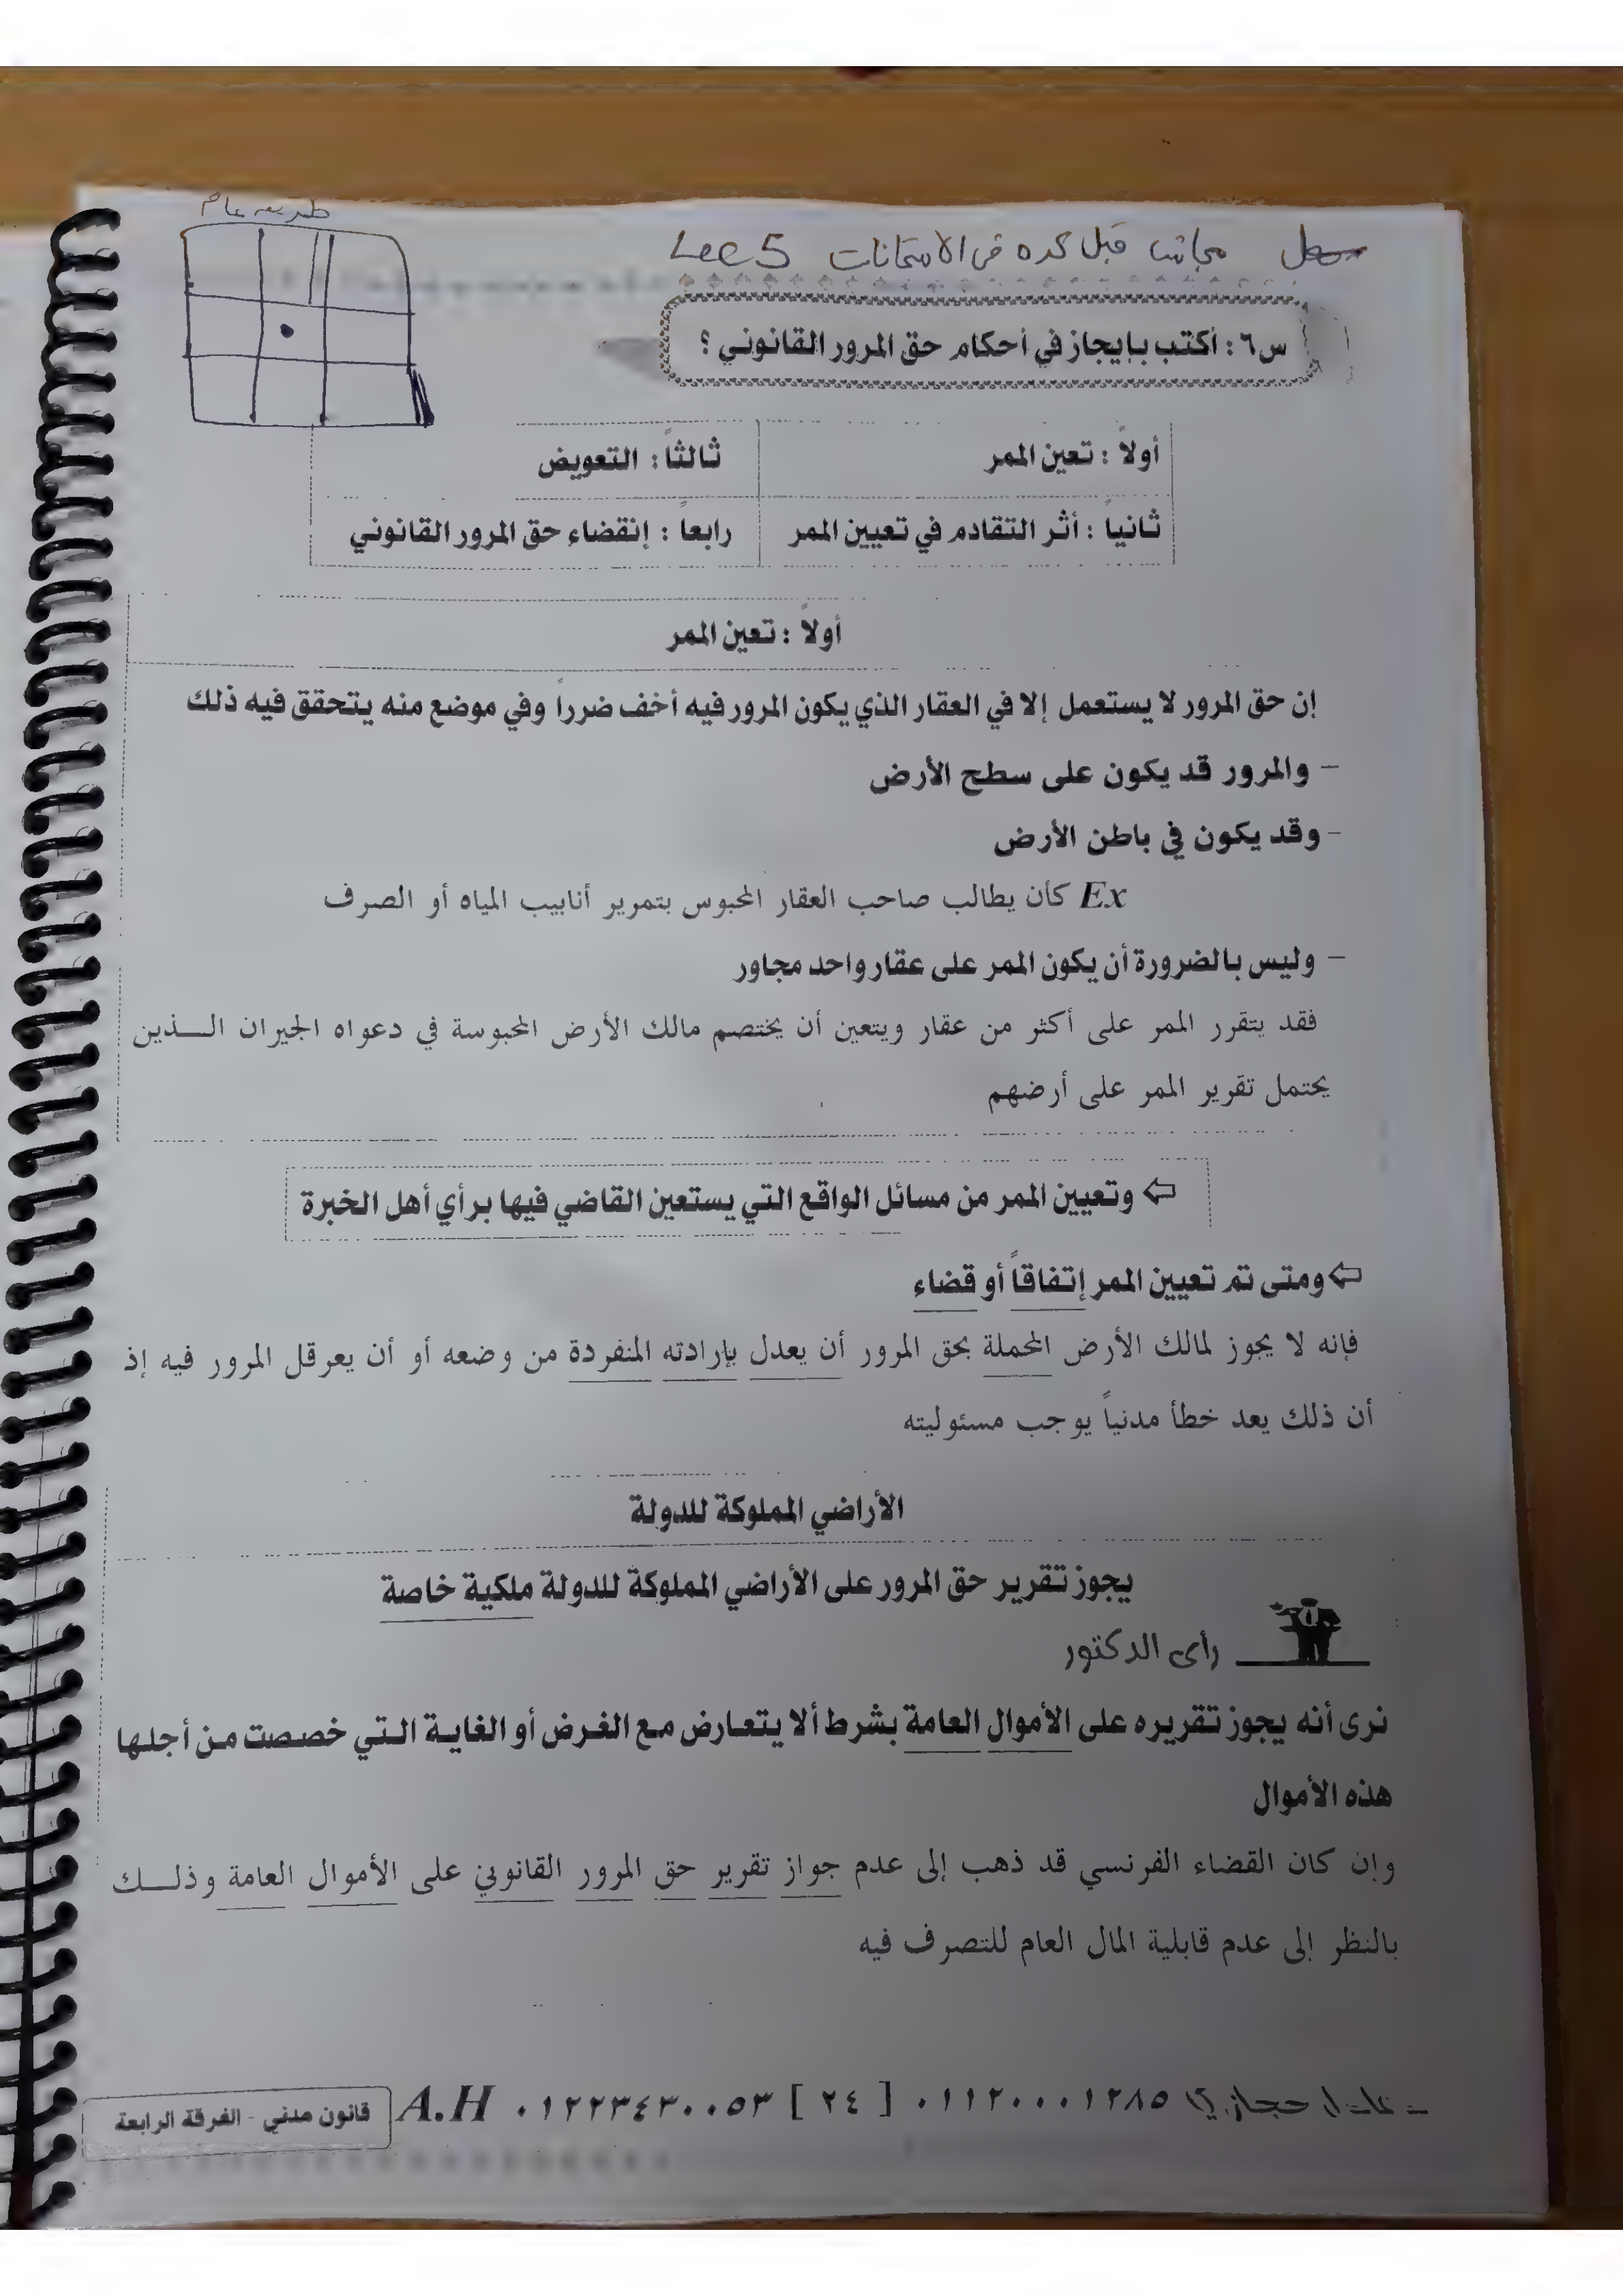 طريق عام
سهل مجاتش قبل كده في الامتحانات Lec 5
س٦ : أكتب بإيجاز في أحكام حق المرور القانوني ؟
أولاً : تعين الممر
ثالثاً : التعويض
ثانياً : أثر التقادم في تعيين الممر
رابعاً : إنقضاء حق المرور القانوني
أولاً : تعين الممر
إن حق المرور لا يستعمل إلا في العقار الذي يكون المرور فيه أخف ضرراً وفي موضع منه يتحقق فيه ذلك
– والمرور قد يكون على سطح الأرض
– وقد يكون في باطن الأرض
Ex كأن يطالب صاحب العقار المحبوس بتمرير أنابيب المياه أو الصرف
– وليس بالضرورة أن يكون الممر على عقار واحد مجاور
فقد يتقرر الممر على أكثر من عقار ويتعين أن يختصم مالك الأرض المحبوسة في دعواه الجيران الـــذين
يحتمل تقرير الممر على أرضهم
⇦ وتعيين الممر من مسائل الواقع التي يستعين القاضي فيها برأي أهل الخبرة
⇦ ومتى تم تعيين الممر إتفاقاً أو قضاء
فإنه لا يجوز لمالك الأرض المحملة بحق المرور أن يعدل بإرادته المنفردة من وضعه أو أن يعرقل المرور فيه إذ
أن ذلك يعد خطأ مدنياً يوجب مسئوليته
الأراضي المملوكة للدولة
يجوز تقرير حق المرور على الأراضي المملوكة للدولة ملكية خاصة
رأى الدكتور
نرى أنه يجوز تقريره على الأموال العامة بشرط ألا يتعارض مع الغرض أو الغاية التي خصصت من أجلها
هذه الأموال
وإن كان القضاء الفرنسي قد ذهب إلى عدم جواز تقرير حق المرور القانوني على الأموال العامة وذلــك
بالنظر إلى عدم قابلية المال العام للتصرف فيه
حجازي ٠١١٢٠٠٠١٢٨٥ [ ٢٤ ] ٠١٢٢٣٤٣٠٠٥٣ A.H
قانون مدني - الفرقة الرابعة